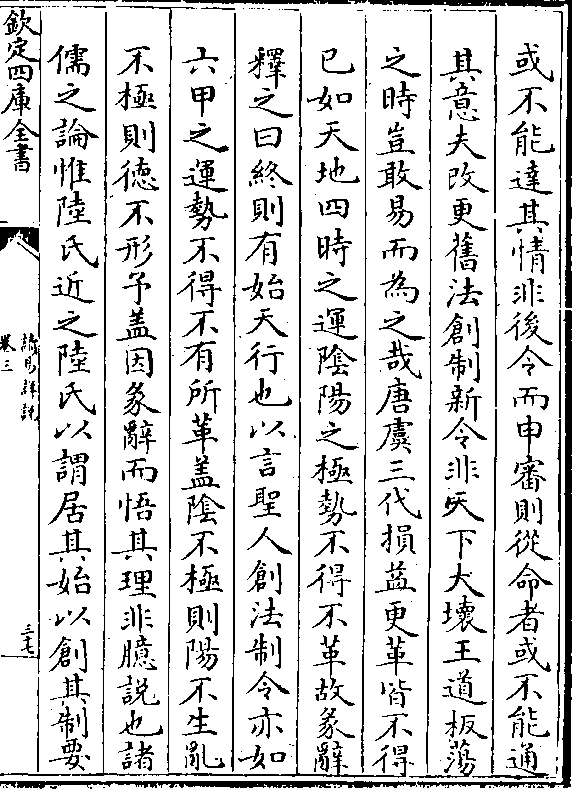 或不能達其情非後令而申審則從命者或不能通
其意夫改更舊法創制新令非天下大壞王道板蕩
之時豈敢易而為之哉唐虞三代損益更革皆不得
已如天地四時之運陰陽之極勢不得不革故彖辭
釋之曰終則有始天行也以言聖人創法制令亦如
六甲之運勢不得不有所革盖陰不極則陽不生亂
不極則徳不形予盖因彖辭而悟其理非臆說也諸
儒之論惟陸氏近之陸氏以謂居其始以創其制要
欽定四庫全書
讀易詳說
卷三
三十七